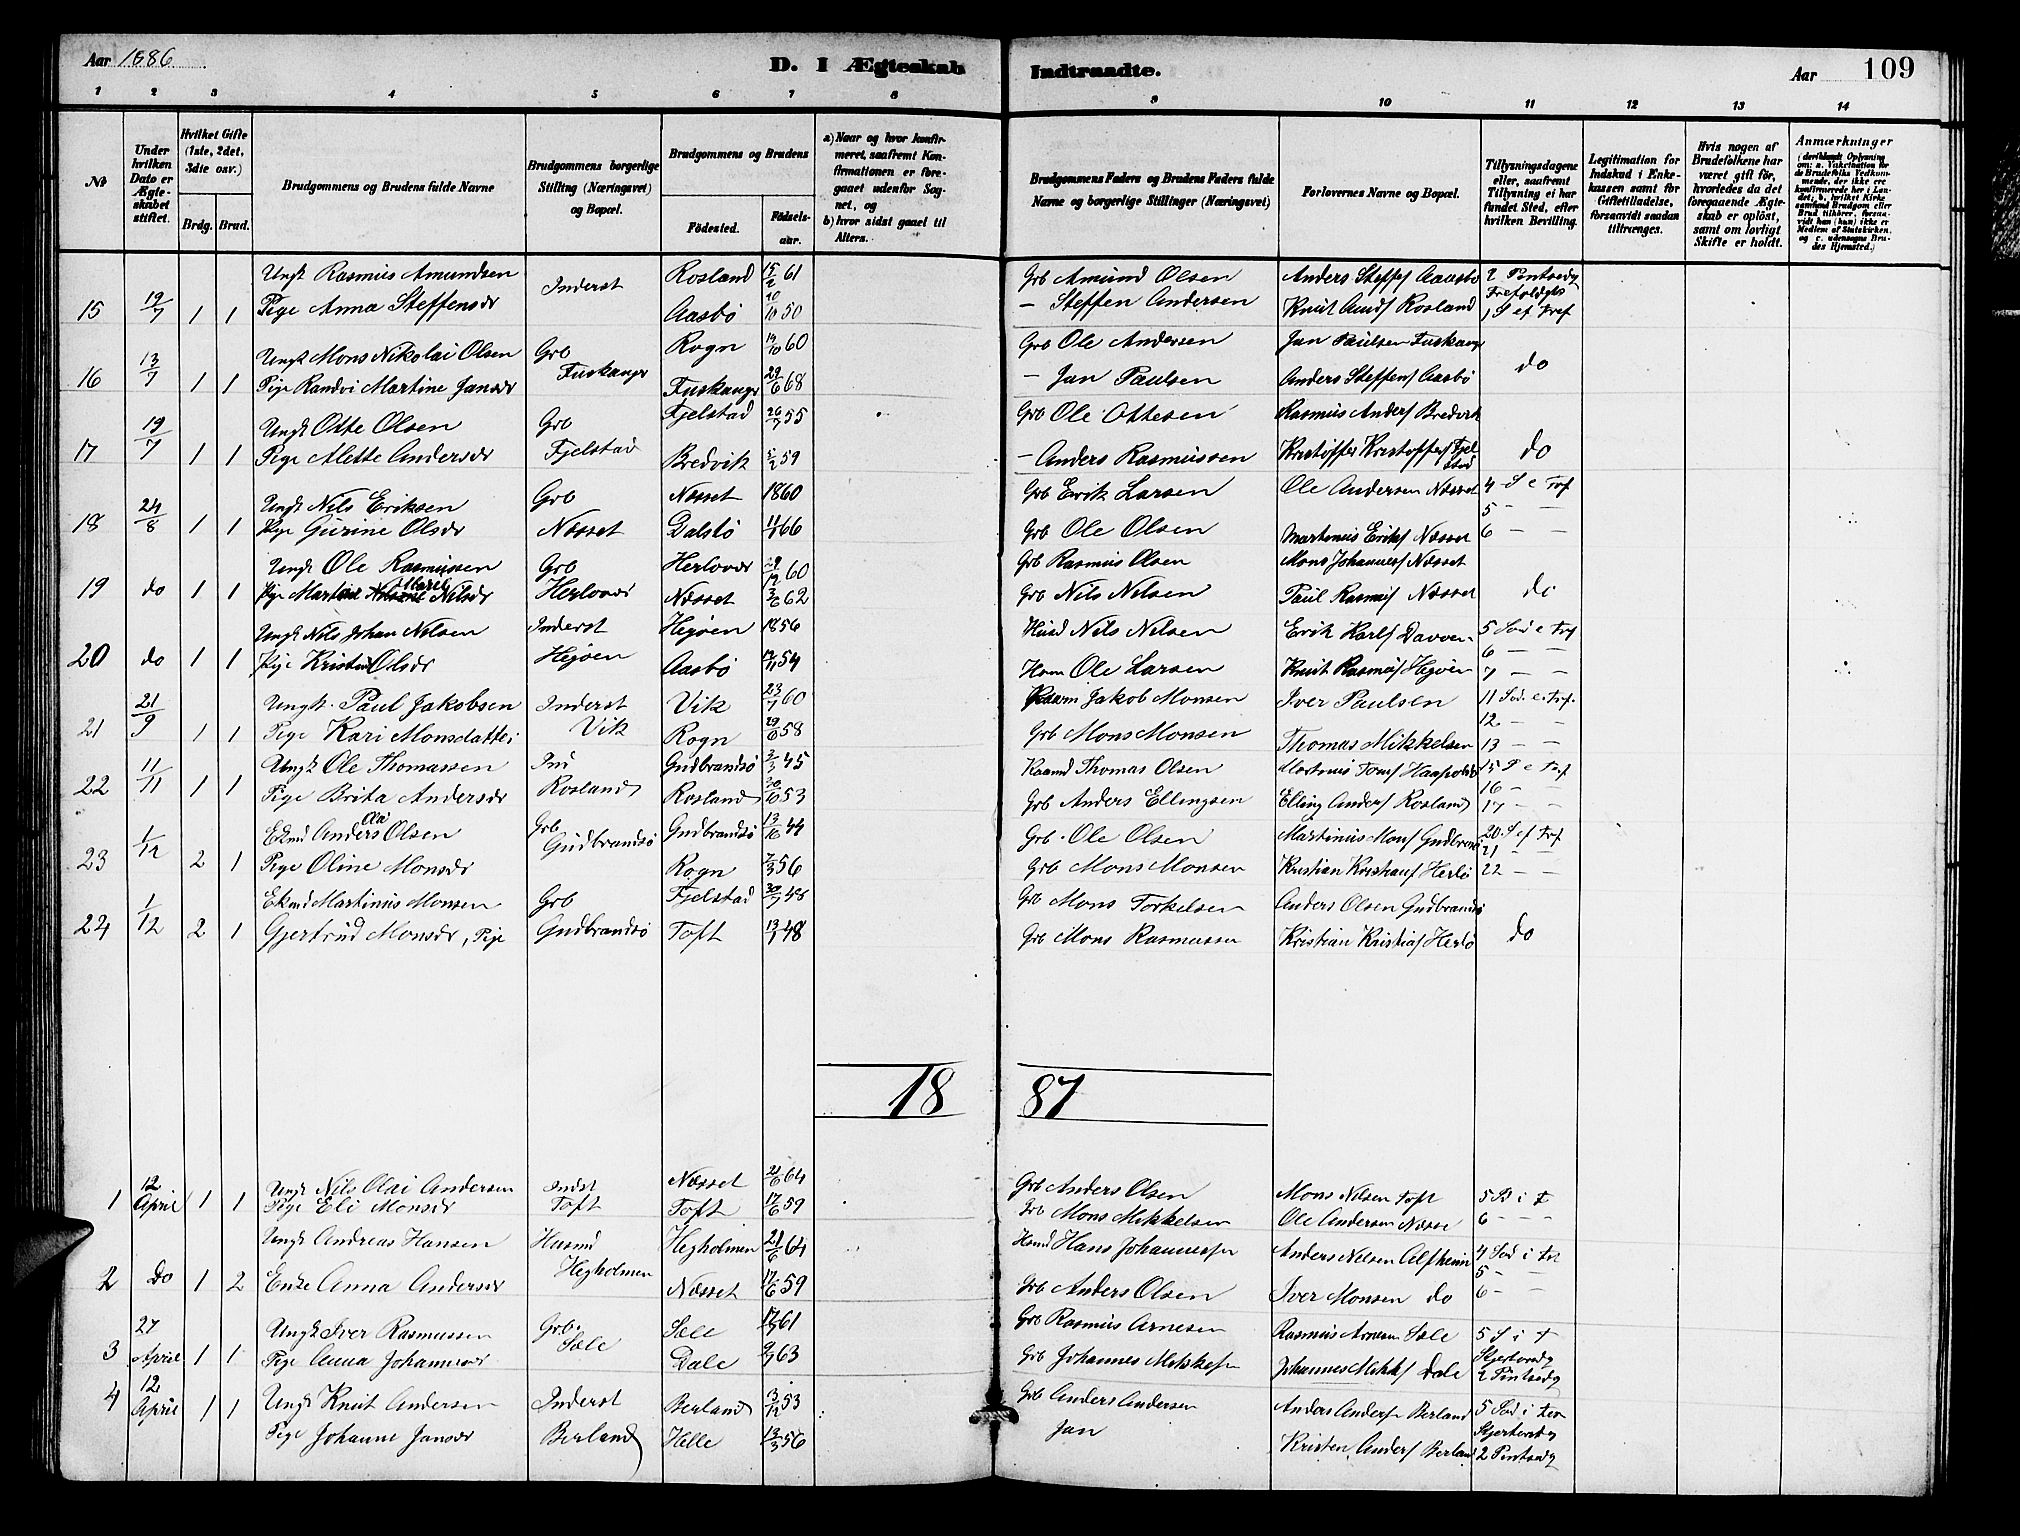 Aar 1886
D. I Ægteskab Indtraadte.
Aar 109
1 2 3 4 5 6 7 8 9 10 11 12 13 14
№
Under hvilken Dato er Ægteskabet stiftet.
Hvilket Gifte (1ste, 2det, 3dte osv.)
Brdg. Brud.
Brudgommens og Brudens fulde Navne
Brudgommens borgerlige Stilling (Næringsvei) og Bopæl.
Brudgommens og Brudens
Födested.
Födselsaar.
a) Naar og hvor konfirmeret, saafremt Konfirmationen er foregaaet udenfor Sognet, og
b) hvor sidst gaaet til Alters.
Brudgommens Faders og Brudens Faders fulde Navne og borgerlige Stillinger (Næringsvei)
Forlovernes Navne og Bopæl.
Tillysningsdagene eller, saafremt Tillysning ei har fundet Sted, efter hvilken Bevilling.
Legitimation for Indskud i Enkekassen samt for Giftetilladelse, forsaavidt saadan tiltrænges.
Hvis nogen af Brudefolkene har været gift för, hvorledes da det foregaaende Ægteskab er oplöst, samt om lovligt Skifte er holdt.
Anmærkninger
Ungk Rasmus Amundsen Inderst Rosland 15/2 61 Grb Amund Olsen Anders Steffs Aasbö 2 Pintsedg
15 19/7 1 1 Pige Anna Steffensdr Aasbö 50 — Steffen Andersen Knut Amds Rosland
Ungk Mons Nikolai Olsen Grb Rogn 19/10 60 Grb Ole Andersen Jan Paulsen Fuskanger
16 13/7 1 1 Pige Randvi Martine Jansdr Fuskanger Fuskanger 29/6 68 — Jan Paulsen Anders Steffens Aasbö do
Ungk Otte Olsen Grb Fjelstad 26/7 55 Grb Ole Ottesen Rasmus Anders Bredvik
17 19/7 1 1 Pige Alette Andersdr Fjelstad Bredvik 59 — Anders Rasmussen Kristoffer Kristoffers Fjelstad do
Ungk Nils Eriksen Grb Næsset 1860 Grb Erik Larsen Ole Andersen Næsset 4 S e Tref
18 24/8 1 1 Pige Gurine Olsdr Næsset Dalsbö 66 Grb Ole Olsen Martinus Eriks Næsset 5 — — 6 — —
Ungk Ole Rasmussen Grb Herlover 60 Grb Rasmus Olsen Mons Johannes Næsset
19 do 1 1 Pige Nilsdr Herlover Næsset 3/6 62 Grb Nils Nilsen Paul Rasmus Næsset do
Ungk Nils Johan Nilsen Inderst Hegöen 1856 Husd Nils Nilsen Erik Karls 5 Sön e Tref
20 do 1 1 Pige Olsdr Hegöen Aasbö 54 Ole Larsen Knut Rasmus Hegöen 6 — — 7 — —
Ungk. Paul Jakobsen Inderst Vik 23/7 60 Jakob Monsen Iver Paulsen 11 Sön. e. Tref.
21 21/9 1 1 Pige Kari Monsdatter Vik Rogn 58 Grb Mons Monsen Thomas Mikkelsen 12 — — 13 — —
Ungk Ole Thomassen Ind Gudbrandsö 45 Thomas Olsen Martinus 15 S e tref
22 11/11 1 1 Pige Brita Andersdr Rosland Rosland 53 Grb Anders Ellingsen Elling Anders Rosland 16 — 17 — —
Ekmd Anders Olsen Grb Gudbrandsö 13/10 44 Grb. Ole Olsen Martinus Mons Gudbrandsö 20. S ef Tref
23 1/12 2 1 Pige Oline Monsdr Gudbrandsö Rogn 56 Grb Mons Monsen Kristian Kristians Herlö 21 — — 22 — —
Ekmd Martinus Monsen Grb Fjelstad 48 Grb Mons Torkelsen Anders Olsen Gudbrandsö
24 1/12 2 1 Gjertrud Monsdr, Pige Gudbrandsö Toft 48 Grb Mons Rasmussen Kristian Kristians Herlö do
18 87
Ungk Nils Olai Andersen Indst Næsset 21/6 64 Grb Anders Olsen Mons Nilsen Toft 5 S i F
1 12 April 1 1 Pige Eli Monsdr Toft Toft 17/6 59 Grb Mons Mikkelsen Ole Andersen Næsse 6 — — —
Ungk Andreas Hansen Husmd Hegholmen 21/6 64 Husmd Hans Johannessen Anders Nilsen Alfheim 4 Søn i
2 Do 1 2 Enke Anna Andersdr Hegholmen Næsset 17/6 59 Grb Anders Olsen Iver Monsen do 5 — 6 — —
Ungk Iver Rasmussen Grb. Sæle 61 Grb Rasmus Arnesen Rasmus Arnesen Sæle 5 S i F
3 27 April 1 1 Pige Anna Johannesdr Sæle Dale 63 Grb Johannes Mikkelsen Johannes Mikks Dale Skjertorsdg 2 Pintsedg
Ungk Knut Andersen Inderst Berland 3/12 53 Grb Anders Andersen Anders Anders Berland 5 Søn i
4 12 April 1 1 Pige Johanne Jansdr Berland Helle 13/3 56 Jan Kristen Anders Berland Skjertorsdg 2 Pintsedg